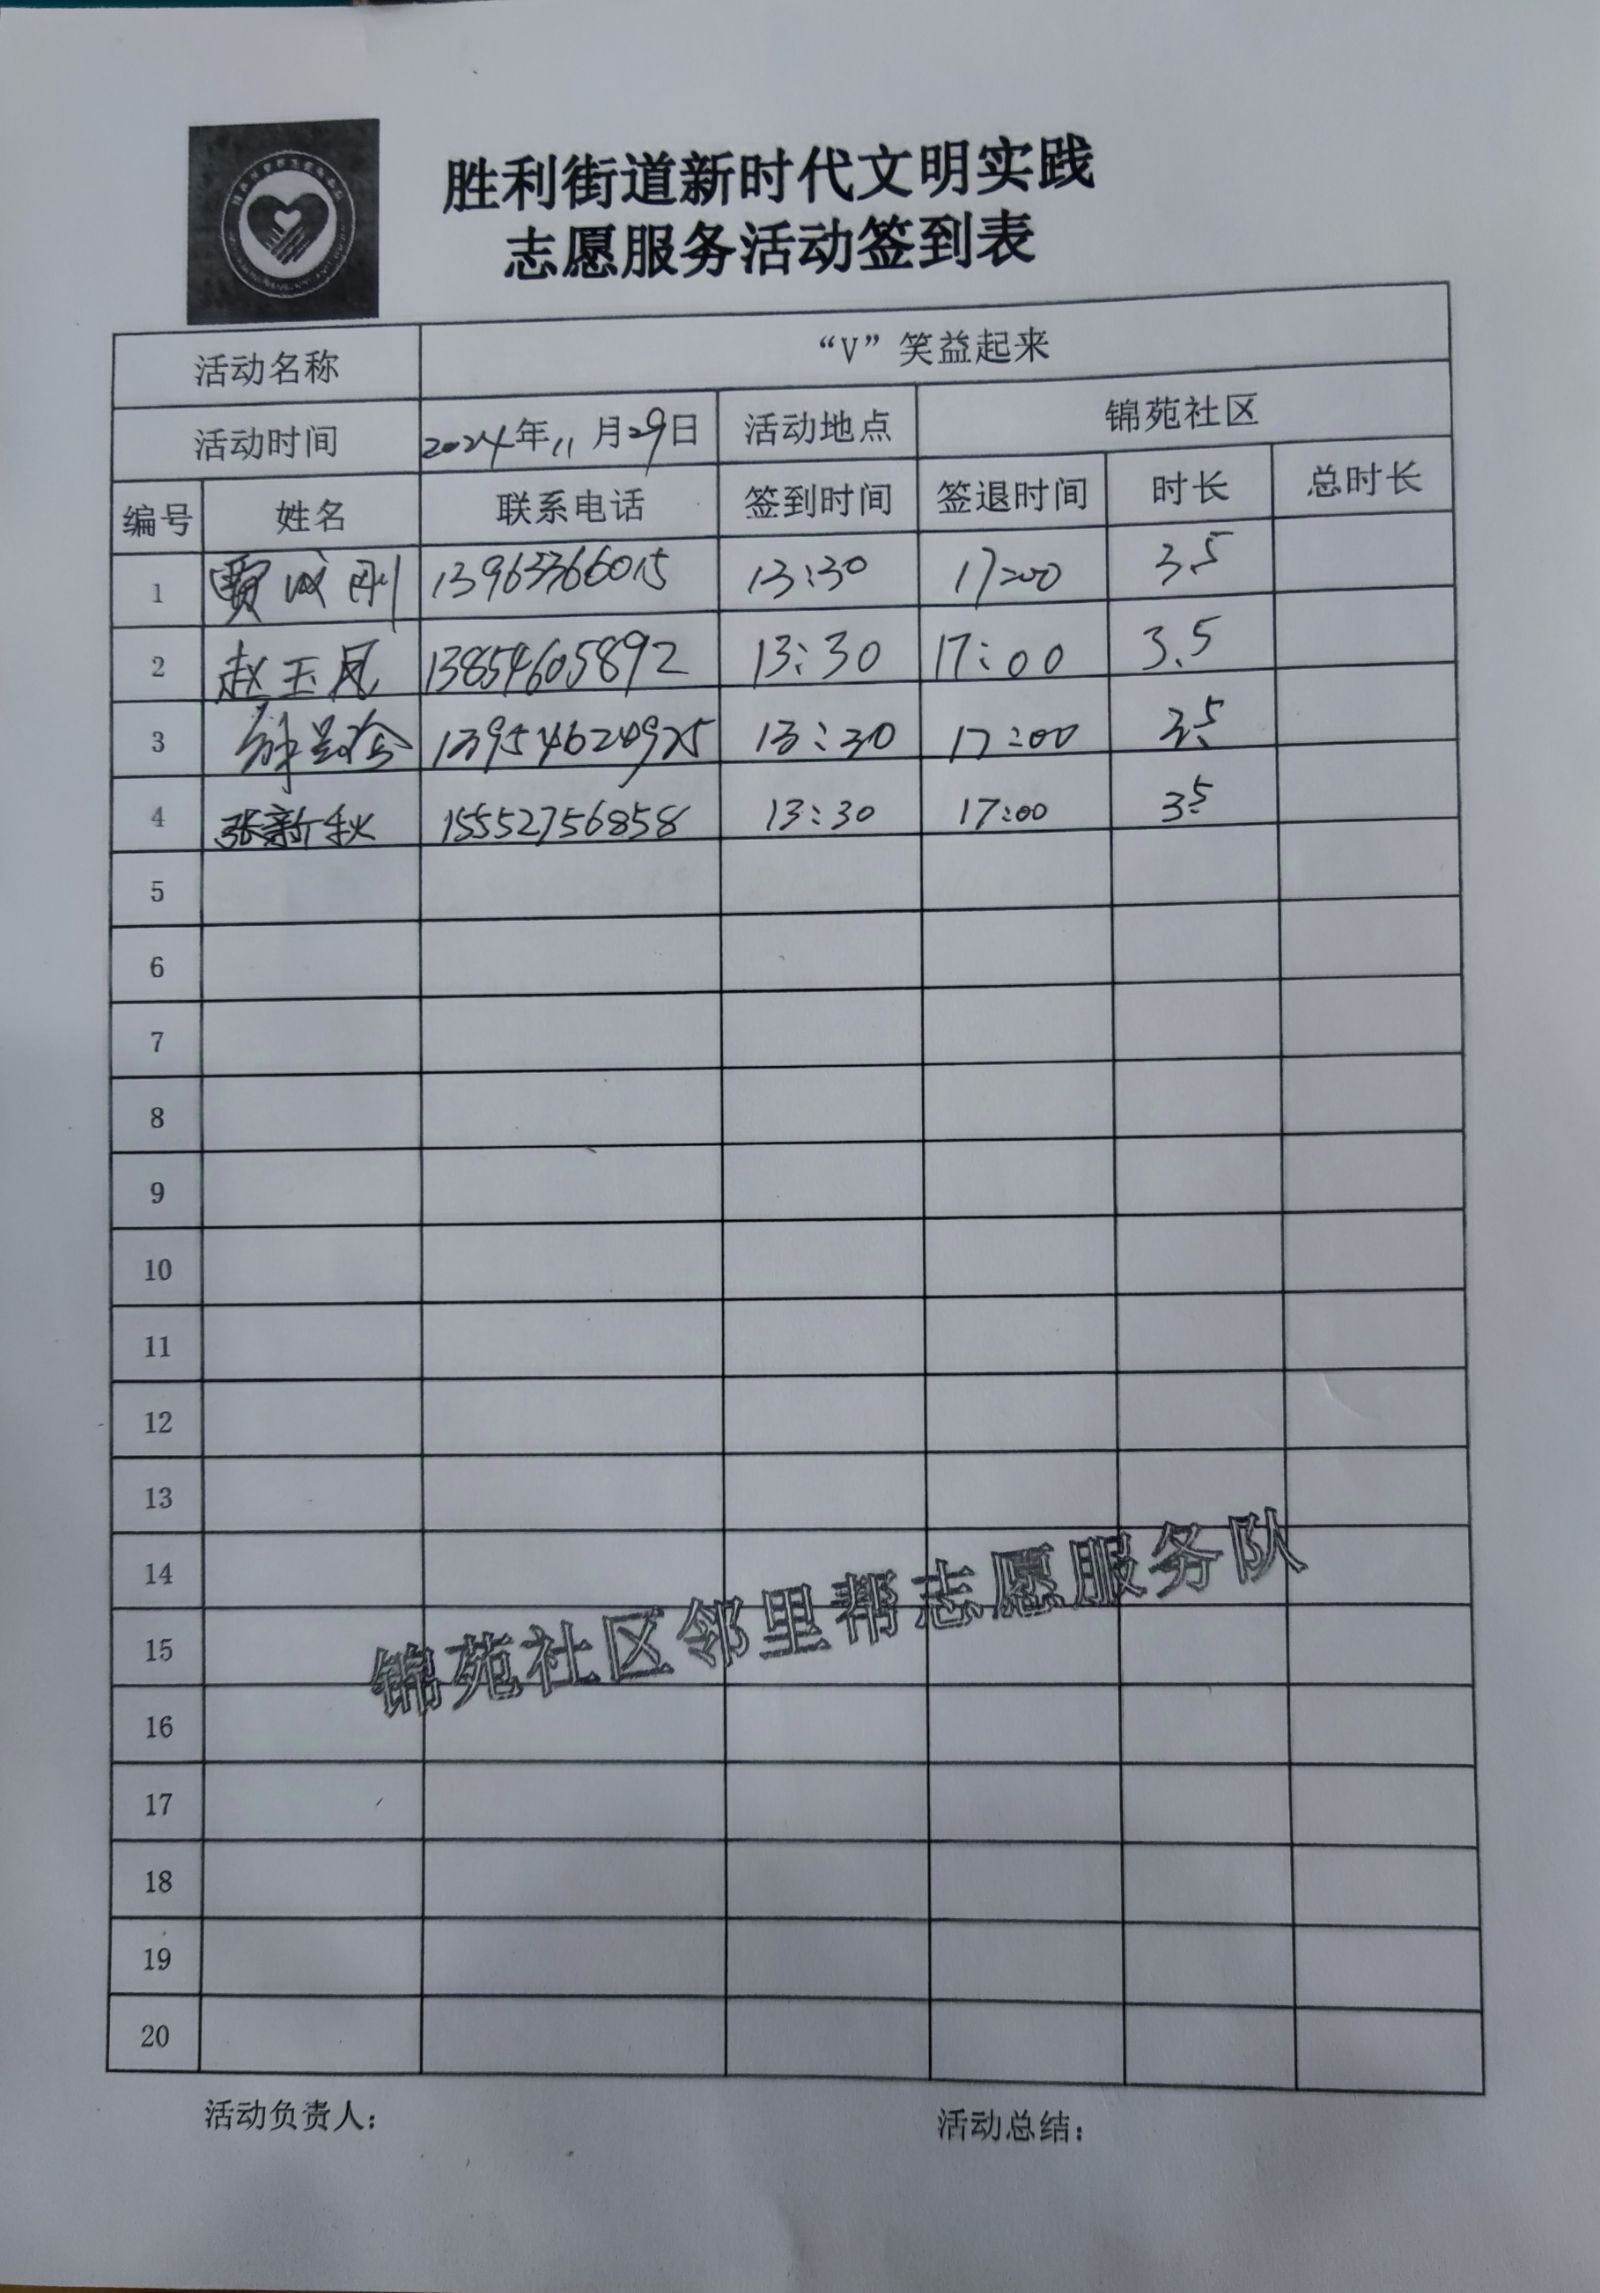 胜利街道新时代文明实践
志愿服务活动签到表
活动名称 “V”笑益起来
活动时间 2024年11月29日 活动地点 锦苑社区
编号 姓名 联系电话 签到时间 签退时间 时长 总时长
1 贾成刚 13963366015 13:30 17:00 3.5
2 赵玉凤 13854605892 13:30 17:00 3.5
3 13954624925 13:30 17:00 3.5
4 张新秋 15552756858 13:30 17:00 3.5
5
6
7
8
9
10
11
12
13
14
锦苑社区邻里帮志愿服务队
15
16
17
18
19
20
活动负责人： 活动总结：